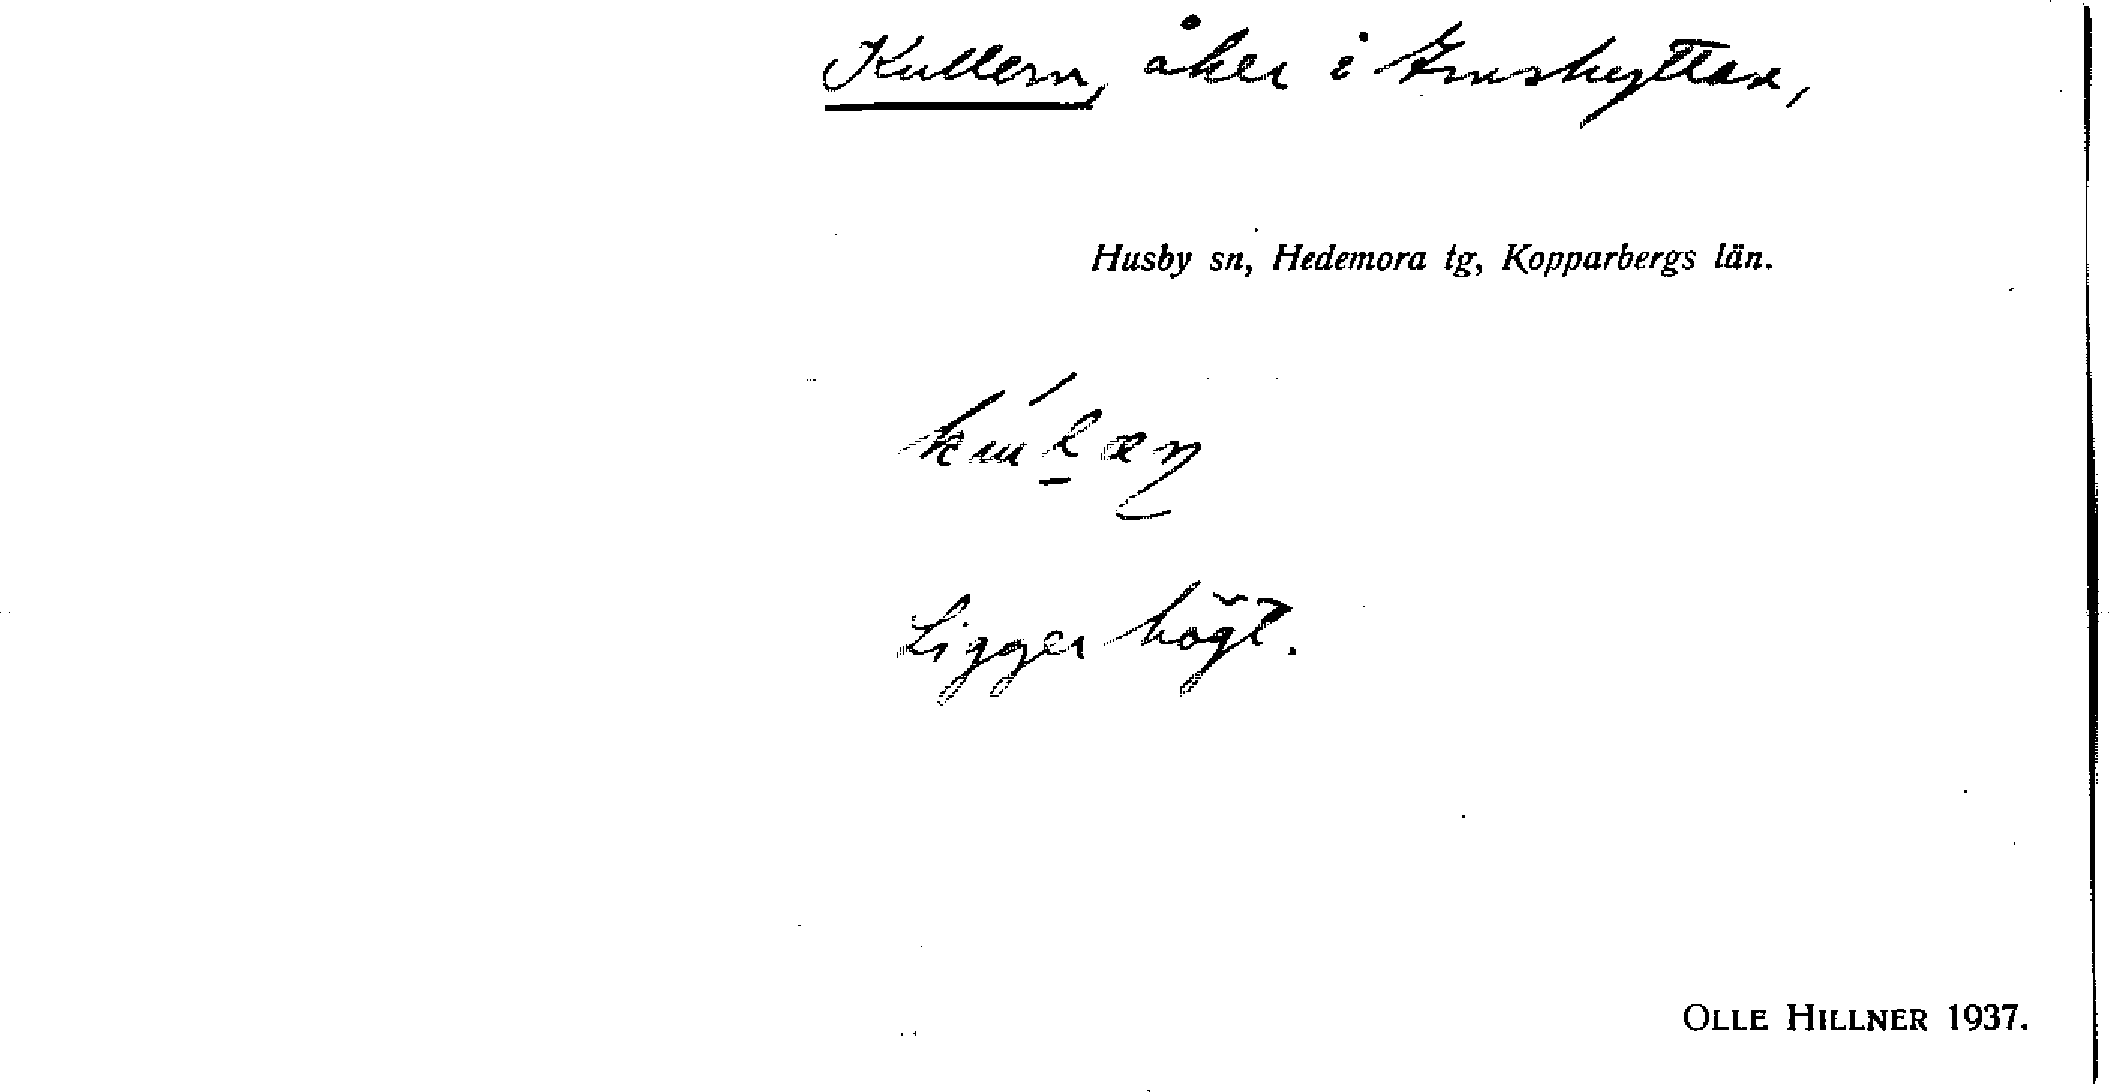 Kullern, åker i Smushyttan,
Husby sn, Hedemora tg, Kopparbergs län.
Ligger högt.
OLLE HILLNER 1937.